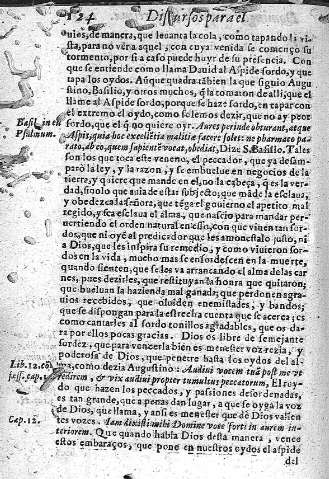 124 Discursos para el
uies, de manera, que leuanta la cola, como tapando la vi-
sta, para no ver a aquel, con cuya venida se començo su
tormento, por si a caso puede huyr de su presencia. Con
que se entiende como llama Dauid al Aspide sordo, y que
tapa los oydos. Aunque quadra tābien la que siguio Augu-
stino, Basilio, y otros muchos, q̄ la tomaton de alli; que el
llame al Aspide sordo, porque se haze sordo, en tapar con
el extremo el oydo, como solemos dezir, que no ay peor
sordo, que el q̄ no quiere oyr. Aures perinde obturant, atque
Basil. in eū Aspis, quia hec excellētia malitiæ facere solet: ne pharmaco pa-
Psalmum. rato, ab eo, quem sapientē vocat, obediat, Dize S. Basilio. Tales
son los que toca este veneno, el peccador, que ya desam-
paró la ley, y la razon, y se embuelue en negocios de la
tierra, y quiere que mande en el, no la cabeça, q̄ es la ver-
dad, sino lo que auia de estar subjecto; que māde la esclaua,
y obedezca la señora, que tēga el gouierno el apetito mal
regido, y sea esclaua el alma, que nascio para mandar per-
uertiendo el orden natural en esso, con que viuen tan sor-
dos, que ni oyē al predicador que les amonesta lo justo, ni
a Dios, que les inspira su remedio, y como viuieron sor-
dos en la vida, mucho mas se ensordescen en la muerte,
quando sienten, que se les va arrancando el alma de las car
nes, pues dezirles, que restituyan la honra que quitaron;
que bueluan la hazienda mal ganada; que perdonen agra-
uios recebidos, que oluiden enemistades, y bandos;
que se dispongan para la estrecha cuenta que se acerca; es
como cantarles al sordo tonillos agradables, que os da-
ra por ellos pocas gracias. Dios es libre de semejante
sordez, que para vencerla bien es menester voz recia, y
poderosa de Dios, que penetre hasta los oydos del al-
Lib. 12. cō ma, como dezia Augustino: Audiui vocem tuā post me vt
redirem, & vix audiui propter tumultus peccatorum, El roy-
do que hazen los peccados, y pasiones desordenadas,
es tan grande, que a penas dan lugar, a que se oyga la voz
de Dios, que llama, y ansi es menester que dè Dios valien
Cap. 12. tes vozes. Iam dixisti mihi Domine voce forti in aurem in-
teriorem. Que quando habla Dios desta manera, vence
estos embaraços, que pone en nuestros oydos el aspide
del